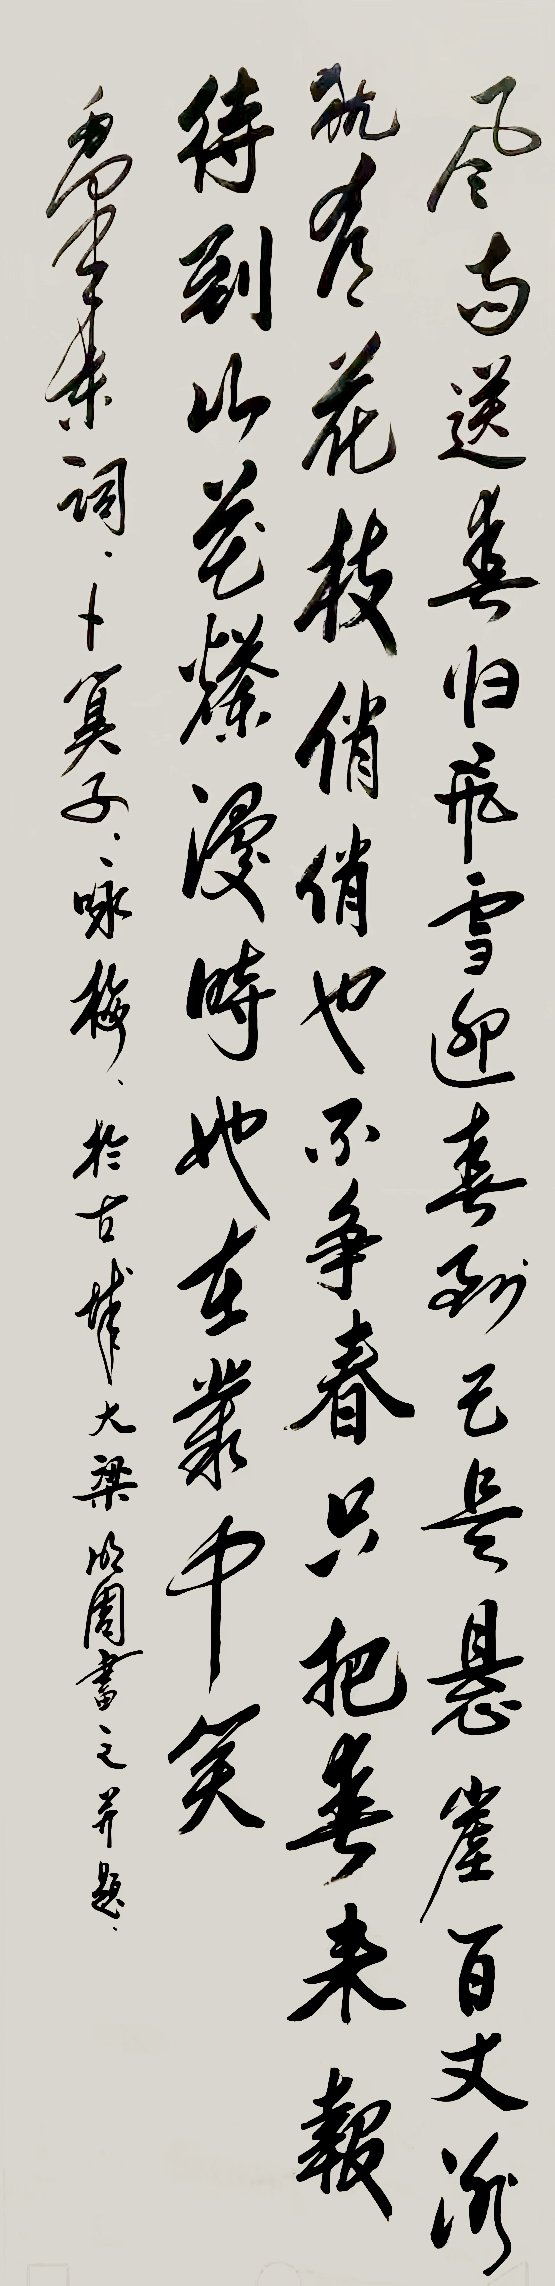 风雨送春归飞雪迎春到已是悬崖百丈冰
犹有花枝俏俏也不争春只把春来报
待到山花烂漫時她在叢中笑
泽东词、卜算子、咏梅、於古城大梁周書之并题、